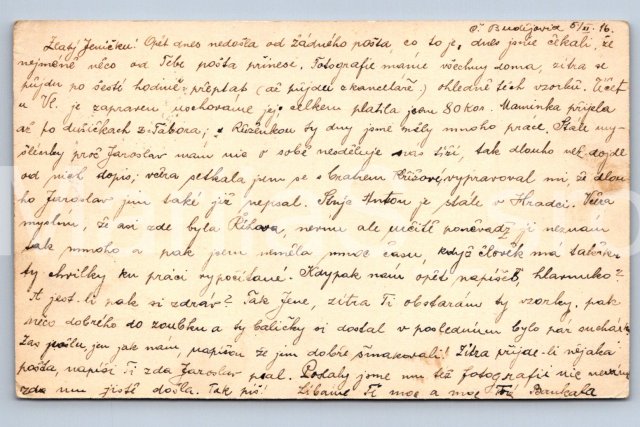 Č. Budějovice 5/XI. 16.
Zlatý Jeníčku! Opět dnes nedošla od žádného pošta, co to je, dnes jsme čekali, že
nejméně něco od Tebe pošta přinese. Fotografie máme všechny doma, zítra se
půjdu po šesté hodině přeptat (až půjdu z kanceláře) ohledně těch vzorků. Účet
u Vl. je zapraven uschované jej, celkem platila jsem 80 Kor. Maminka přijela
až po dušičkách z Tábora; s Růženkou ty dny jsme měly mnoho práce. Stále my-
šlenky proč Jaroslav nám nic o sobě nesděluje nás tíží, tak dlouho než dojde
od nich dopis, včera setkala jsem se s bratrem Růžové, vypravoval mi, že dlou-
ho Jaroslav jim také již nepsal. Strýc Anton je stále v Hradci. Věra
myslím, že asi zde byla Říhova, nevím ale určitě poněvadž ji neznám
tak mnoho a pak jsem neměla mnoho času, když člověk má takové
ty chvilky ku práci vypočítané. Kdypak nám opět napíšeš, hlavinko?
A jest-li pak si zdráv? Tak Jene, zítra Ti obstarám ty vzorky, pak
něco dobrého do zoubku a ty balíčky si dostal v posledním bylo pár suchárků
Zas pošlu jen jak nám napíšou že jim dobře šmakovali! Zítra přijde-li nějaká
pošta, napíši Ti zda Jaroslav psal. Poslaly jsme mu též fotografii nic nevíme
zda mu jistě došla. Tak piš! Líbáme Tě moc a moc Tvá